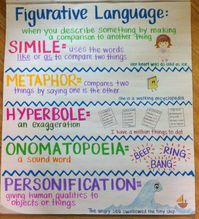 Figurative Language:
when you describe something by making
a comparison to another thing
SIMILE= uses the words
like or as to compare two things
Her heart was as cold as ice.
METAPHOR= compares two
things by saying one is the other
She is a walking encyclopedia.
HYPERBOLE=
an exaggeration
I have a million things to do!
ONOMATOPOEIA=
a sound word
BEEP
RING
BANG
PERSONIFICATION=
giving human qualities to
objects or things
The angry sea swallowed the tiny ship